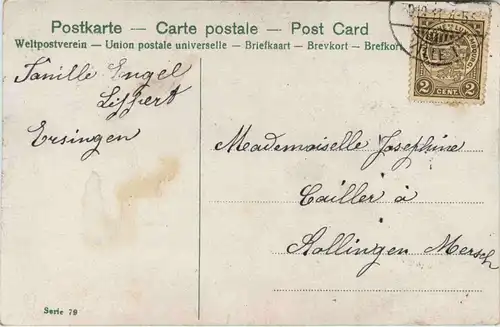 Postkarte — Carte postale — Post Card
Weltpostverein — Union postale universelle — Briefkaart — Brevkort — Brefkort
Familie Engel
Lippert
Ersingen
2 CENT. 2
Mademoiselle Josephine
Cailler à
Rollingen Mersch
Serie 79